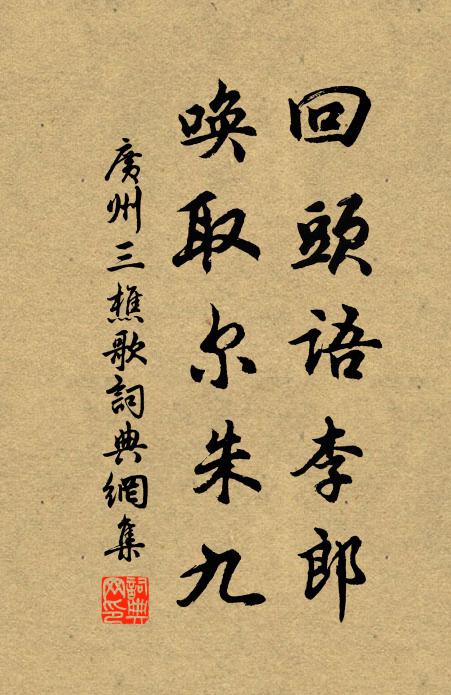 回頭語李郎
喚取尔朱九
廣州三樵歌詞典網集
詞典网印